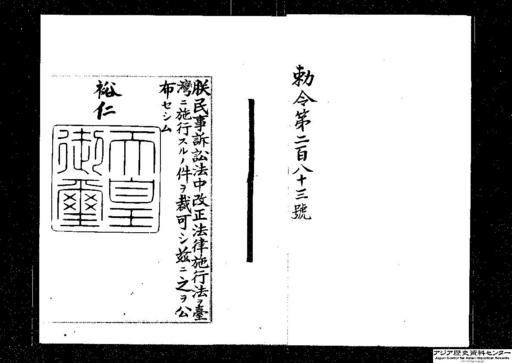 勅令第二百八十三號
朕民事訴訟法中改正法律施行法ヲ臺
灣ニ施行スルノ件ヲ裁可シ茲ニ之ヲ公
布セシム
裕仁
天皇
御璽
アジア歴史資料センター
Japan Center for Asian Historical Records